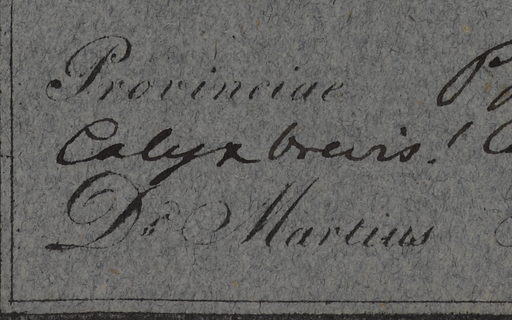 Provinciae
Calyx brevis!
Dr Martius